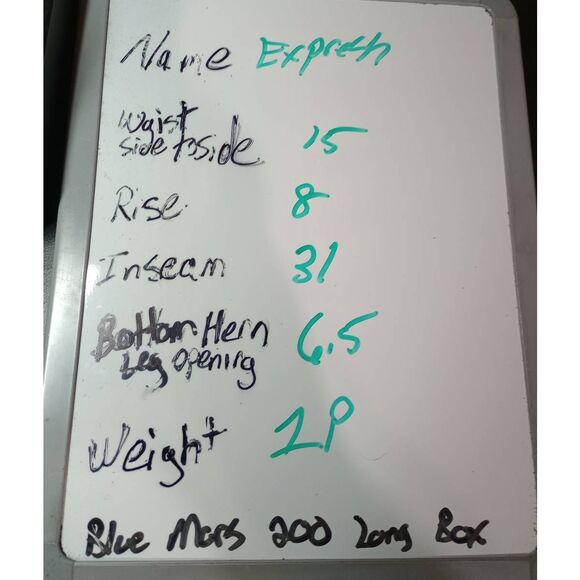 Name Express
Waist
side to side 15
Rise 8
Inseam 31
Bottom Hem 6.5
Leg opening
Weight 1P
Blue Mars 200 Long Box